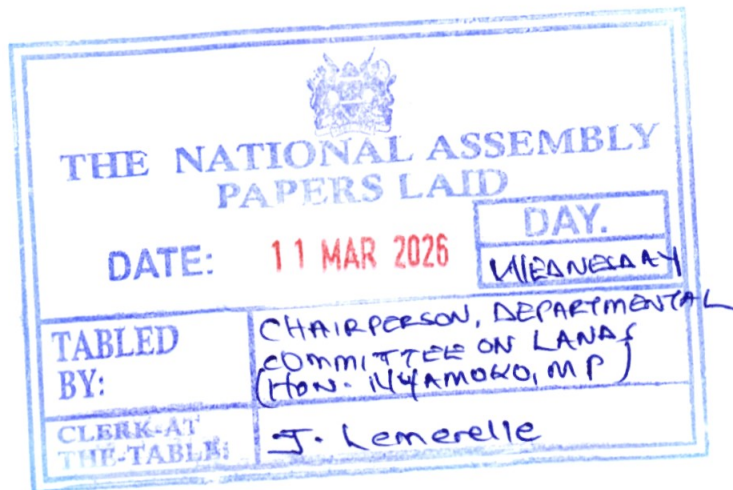 THE NATIONAL ASSEMBLY
PAPERS LAID
DATE: 11 MAR 2026
DAY.
WEDNESDAY
TABLED BY:
CHAIRPERSON, DEPARTMENTAL
COMMITTEE ON LANDS
(HON. NYAMOKO, MP)
CLERK-AT THE-TABLE:
J. Lemerelle